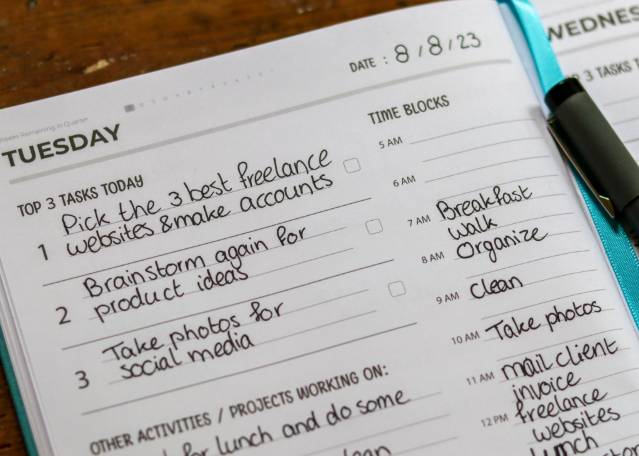 TUESDAY
DATE : 8/8/23
TOP 3 TASKS TODAY
1 Pick the 3 best freelance
websites & make accounts
2 Brainstorm again for
product ideas
3 Take photos for
social media
OTHER ACTIVITIES / PROJECTS WORKING ON:
for lunch and do some
TIME BLOCKS
5 AM
6 AM
7 AM Breakfast
walk
8 AM Organize
9 AM Clean
10 AM Take photos
11 AM mail client
invoice
12 PM freelance
websites
lunch
WEDNES
3 TASKS T